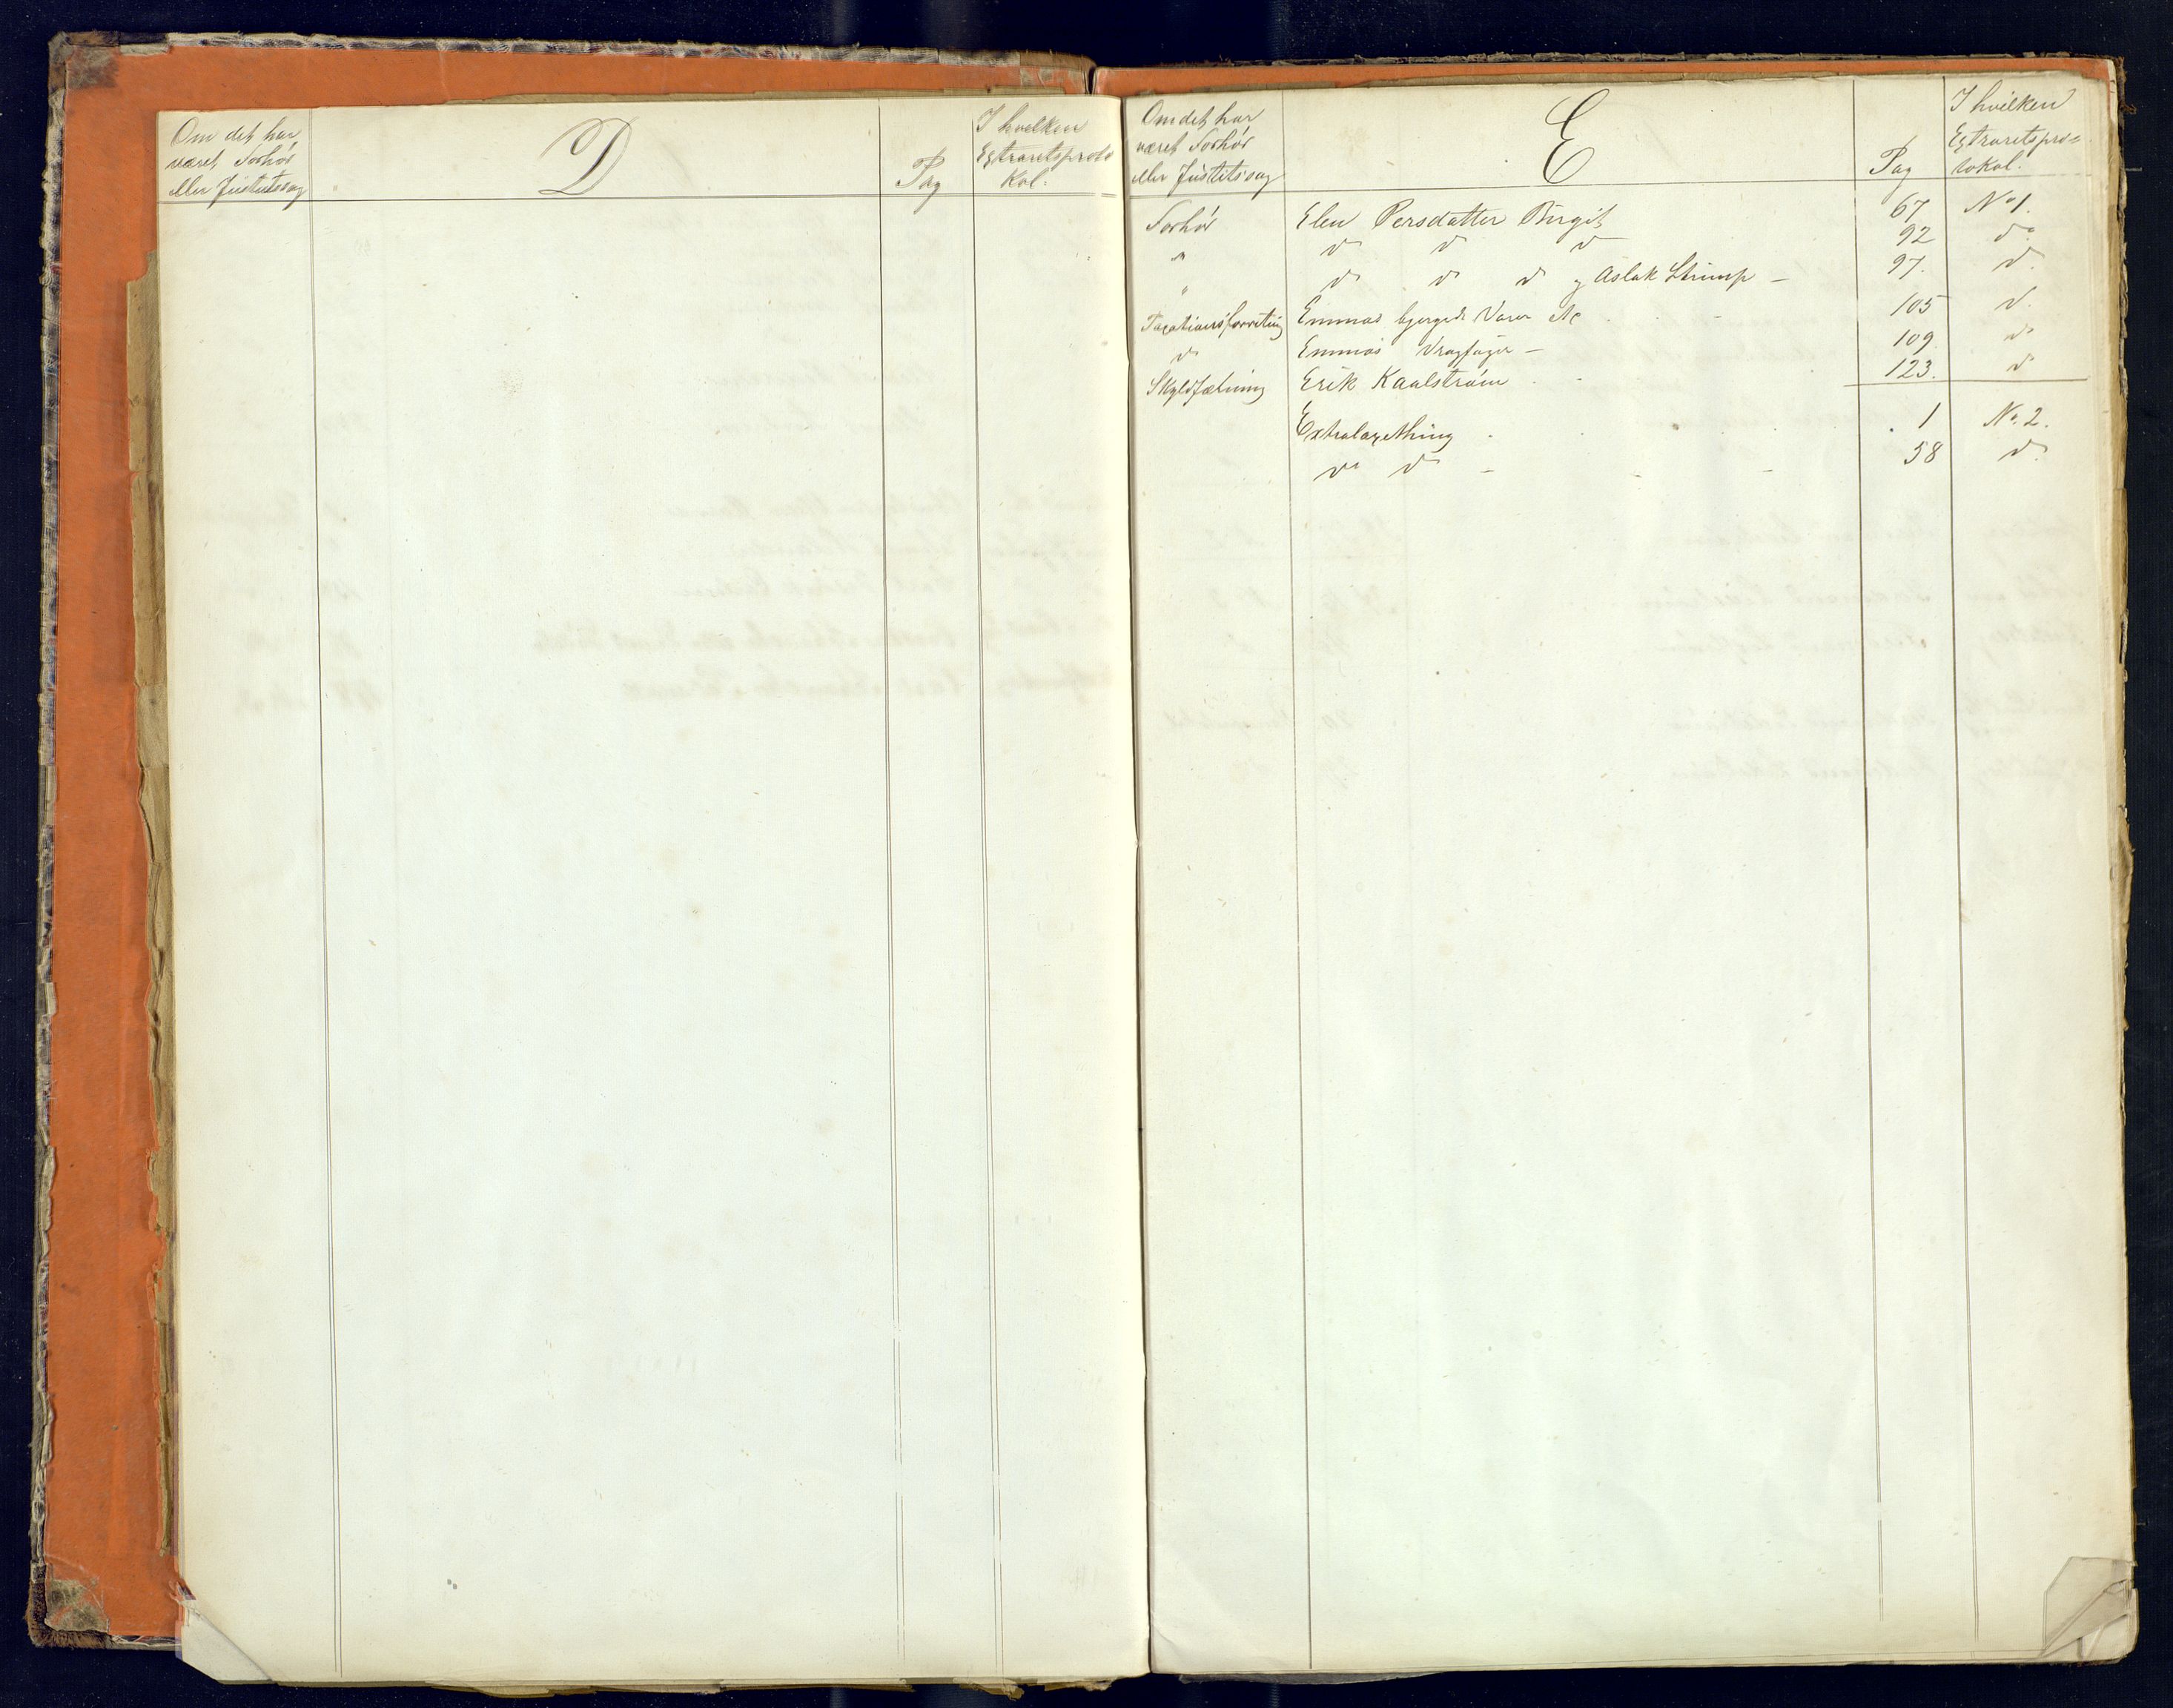 Om det har
været Forhør
eller Justitssag
D
Pag
I hvilken
Extraretsproto
kol.
Om det har
været Forhør
eller Justitssag
E
Pag
I hvilken
Extraretspro=
tokol.
Forhør Elen Persdatter Birgit 67 No 1.
" do do do 92 do
" do do do og Aslak Strimp – 97. do
Taxationsforretning Emmas bjergede Varer &c 105 do
do Emmas Vragfager – 109 do
Skyldsætning Erik Kaalstrøm 123. do
Extralagething 1 No. 2.
do do – 58 do